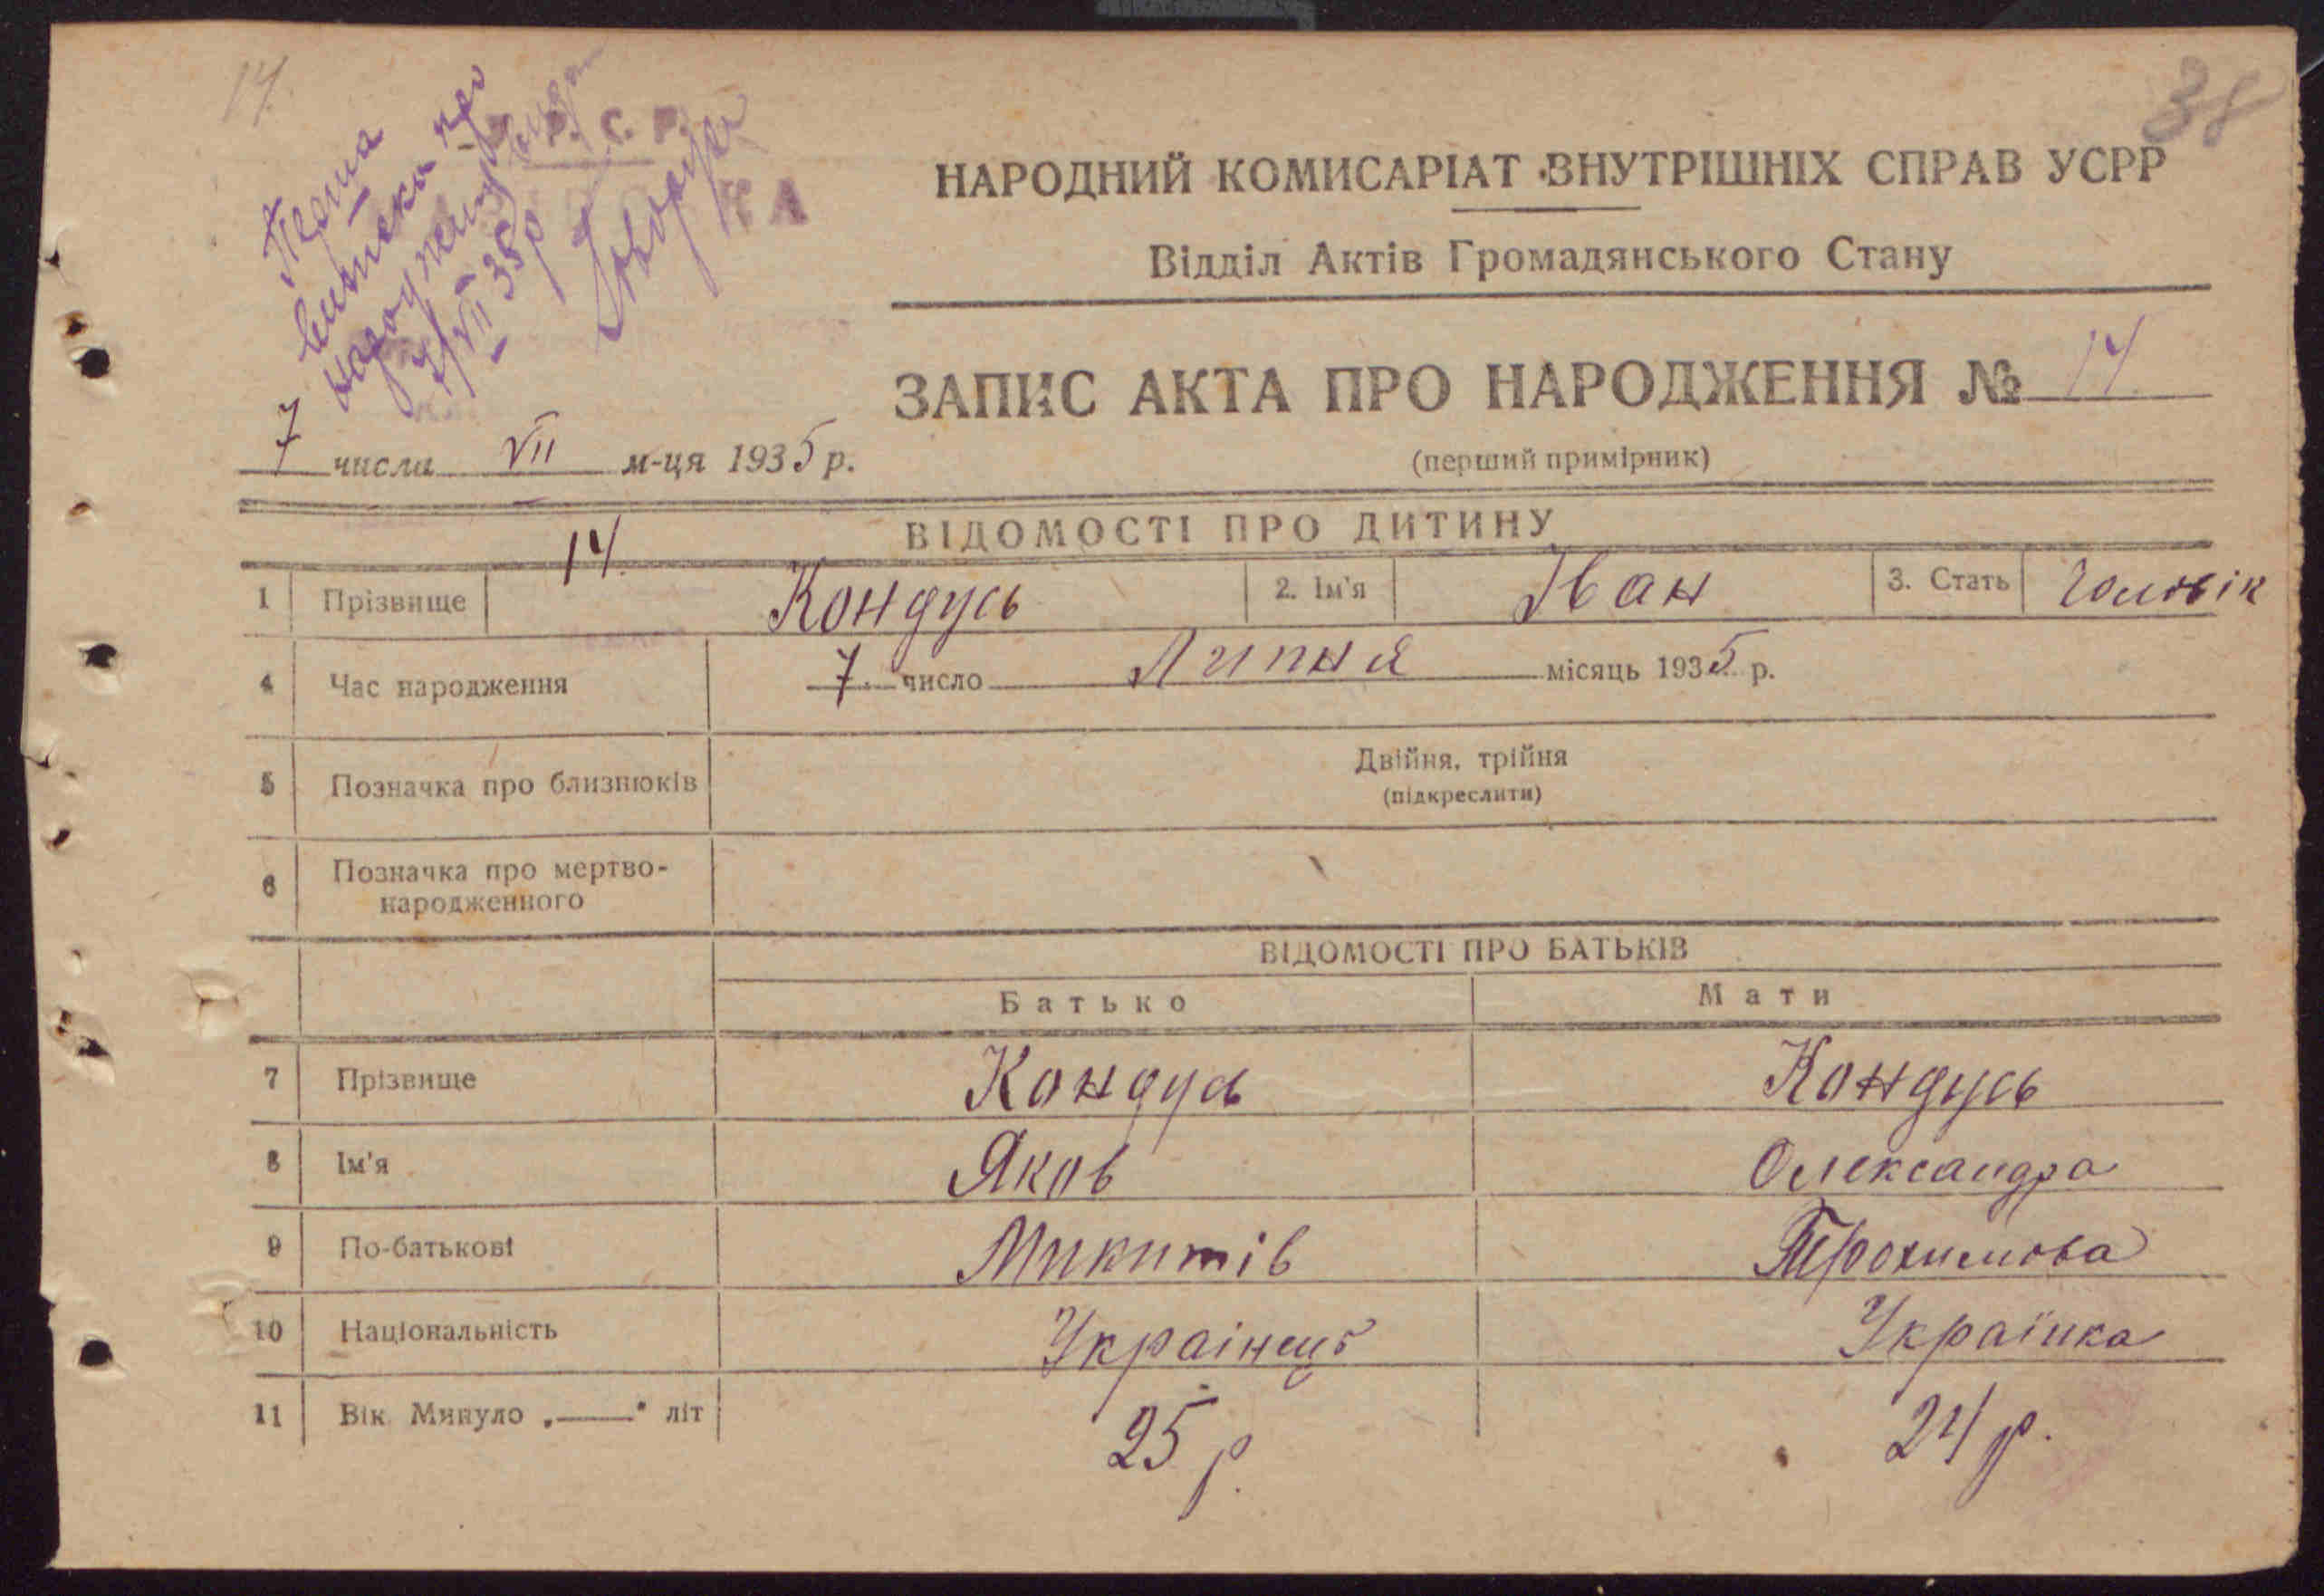 14.
38
Перша
виписка про
народження видана
7/VII 35р
Р. С. Р.
КА
НАРОДНИЙ КОМИСАРІАТ ВНУТРІШНІХ СПРАВ УСРР
Відділ Актів Громадянського Стану
ЗАПИС АКТА ПРО НАРОДЖЕННЯ № 14
7 числа VII м-ця 1935 р.
(перший примірник)
ВІДОМОСТІ ПРО ДИТИНУ
14.
1 Прізвище Кондусь 2. Ім'я Іван 3. Стать Чоловік
4 Час народження 7 число Липня місяць 1935 р.
5 Позначка про близнюків Двійня, трійня
(підкреслити)
6 Позначка про мертво-
народженного
ВІДОМОСТІ ПРО БАТЬКІВ
Батько Мати
7 Прізвище Кондусь Кондусь
8 Ім'я Яков Олександра
9 По-батькові Микитів Трохимова
10 Національність Украінець Українка
11 Вік. Минуло „——" літ 25 р. 24 р.